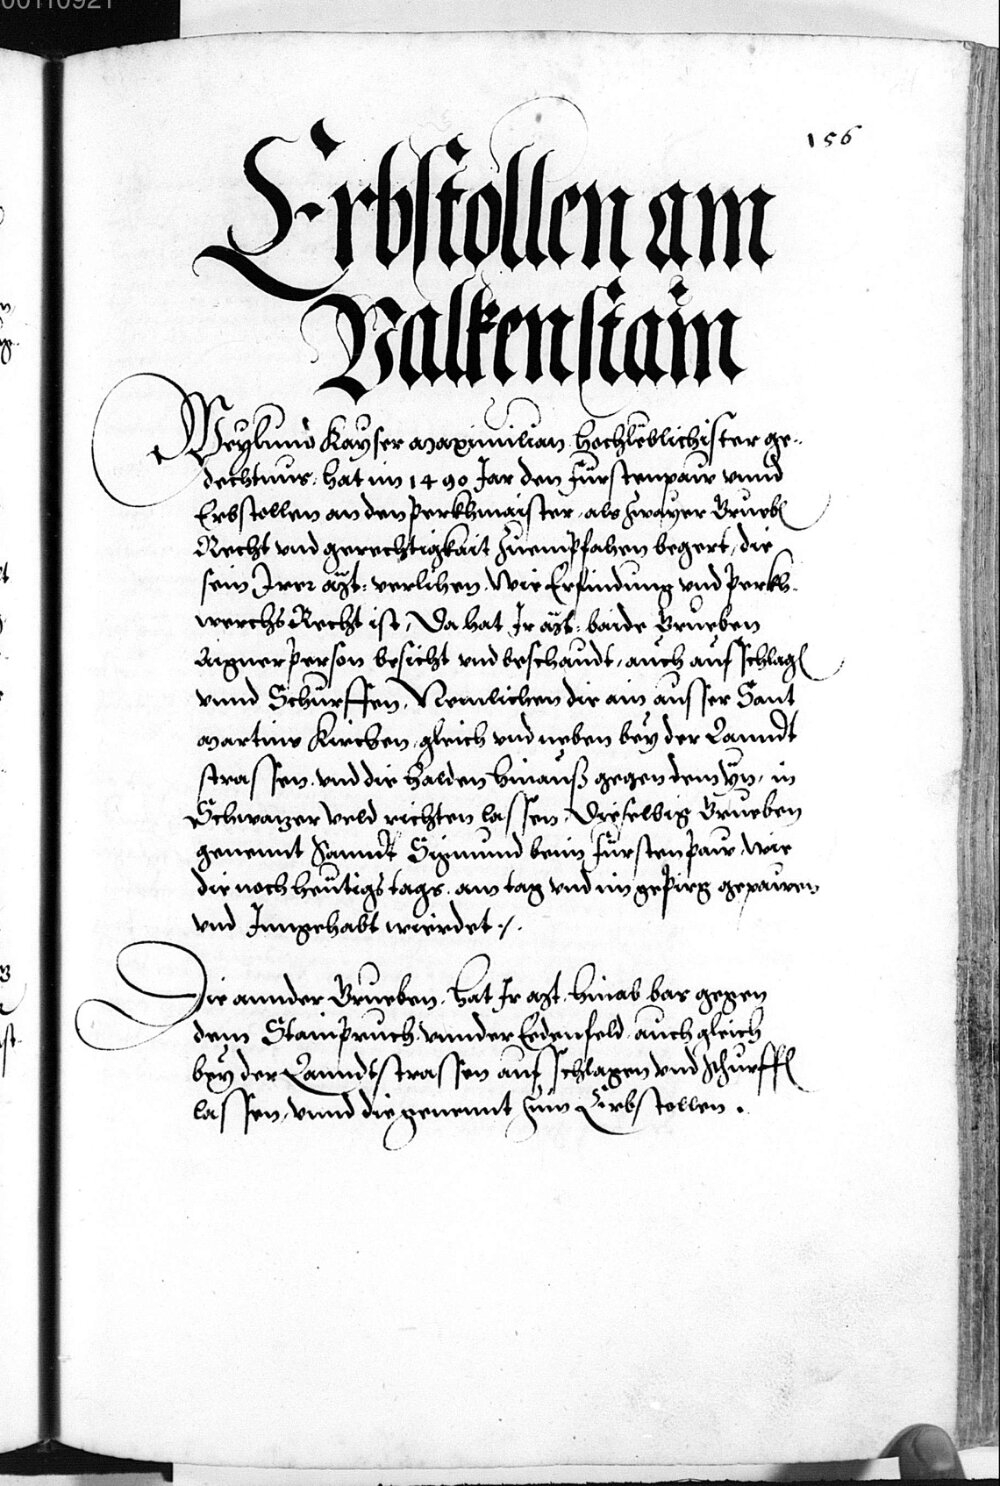 00110921
156
Erbstollen am
Valkenstain
Weylund Kayser Maximilian hochlöblichister ge-
dechtnus, hat im 1490 Jar den Fürstenpaw vnnd
Erbstollen an den Perkhmaister, als zwayer Grueb
Recht vnd gerechtigkait zuempfahen begert, die
sein Irer ayt: verlihen, Wie Erfindung vnd Perkh-
werchs Recht ist, Da hat Ir ayt: baide Grueben
Aigner Person besicht vnd beschaudt, auch aufschlag
vnnd Schürffen, Nemlichen die ain ausser Sant
Martins Kirchen, gleich vnd neben bey der Lanndt
strassen, vnd die Halden hinauß gegen dem Yn, in
Schwatzer veld richten lassen, Dieselbig Grueben
genennt Sanndt Sigmund beim Fürstenpaw, wie
die noch heutigs tags, am tag vnd im gepirg gepauen
vnd Inngehabt wierdet ./.
Die annder Grueben, hat Ir ayt, hinab bas gegen
dem Stainpruch, vnnder Eedenfeld, auch gleich
bey der Lanndtstrassen aufschlagen vnd schurff
lassen, vnnd die genennt zum Erbstollen.